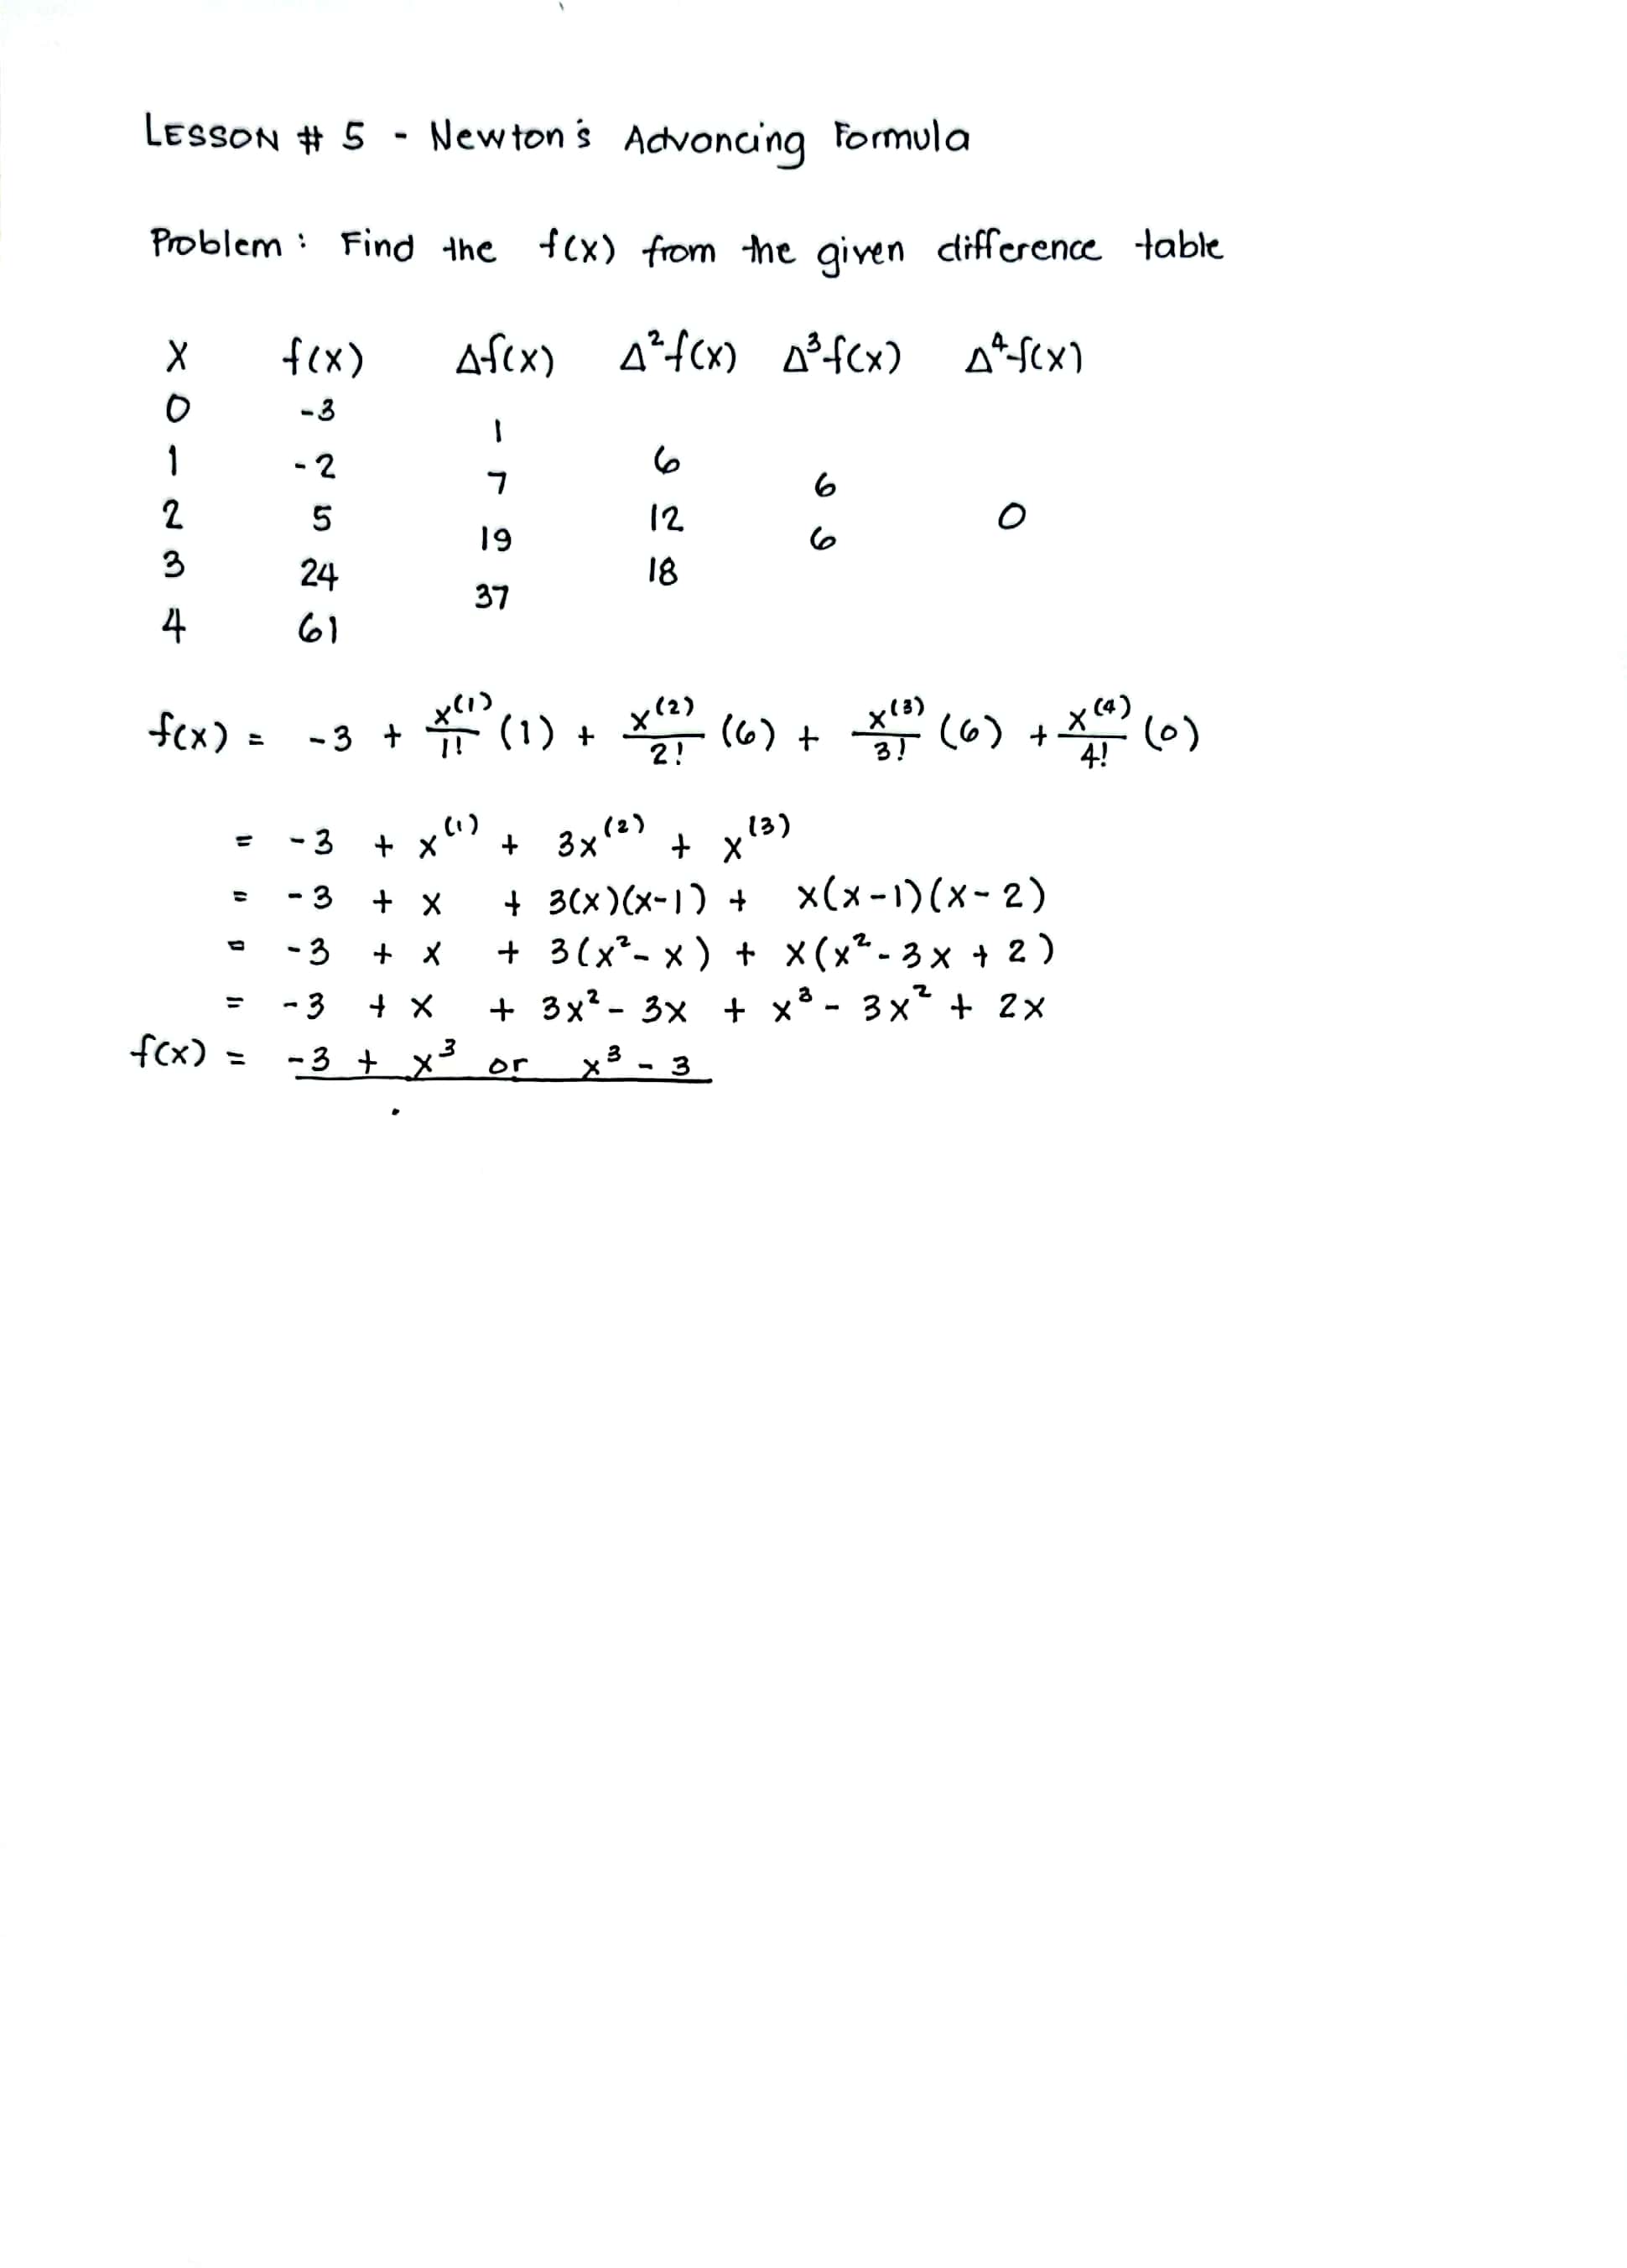 LESSON # 5 - Newton's Advancing Formula
Problem : Find the f(x) from the given difference table
X f(x) Δf(x) Δ²f(x) Δ³f(x) Δ⁴f(x)
0 -3
1
1 -2 6
7 6
2 5 12 0
19 6
3 24 18
37
4 61
f(x) = -3 + x⁽¹⁾/1! (1) + x⁽²⁾/2! (6) + x⁽³⁾/3! (6) + x⁽⁴⁾/4! (0)
= -3 + x⁽¹⁾ + 3x⁽²⁾ + x⁽³⁾
= -3 + x + 3(x)(x-1) + x(x-1)(x-2)
= -3 + x + 3(x²-x) + x(x²-3x+2)
= -3 + x + 3x² - 3x + x³ - 3x² + 2x
f(x) = -3 + x³ or x³ - 3